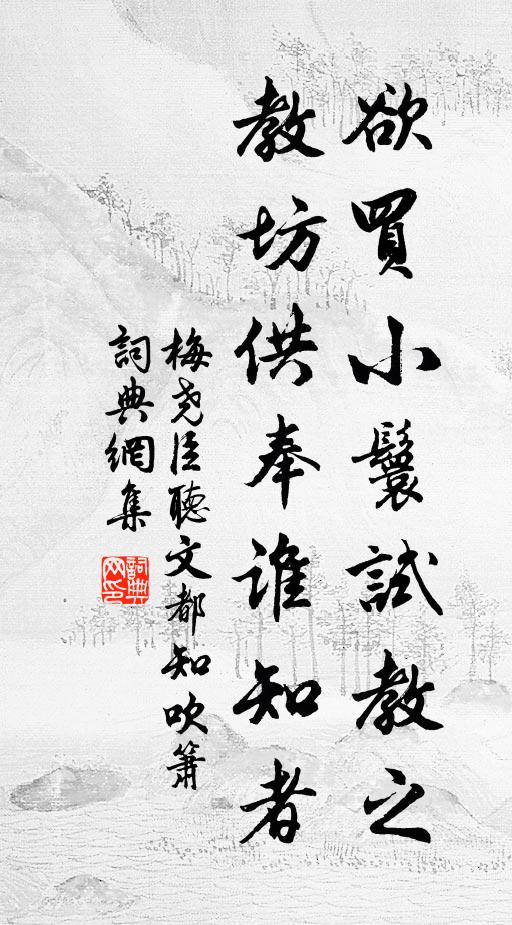 欲買小鬟試教之
教坊供奉誰知者
梅堯臣聽文都知吹簫
詞典網集
詞典网印